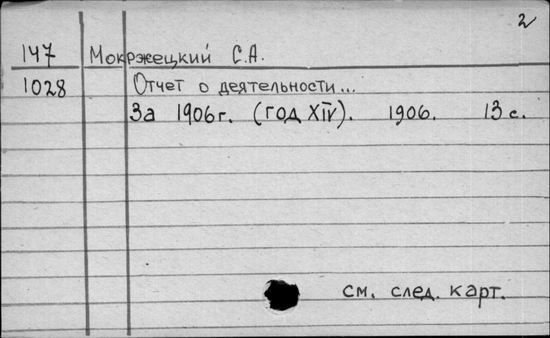 2
147 Мокржецкий С.А.
1028 Отчет о деятельности...
За 1906 г. (год XIV). 1906. 13 с.
см. след. карт.